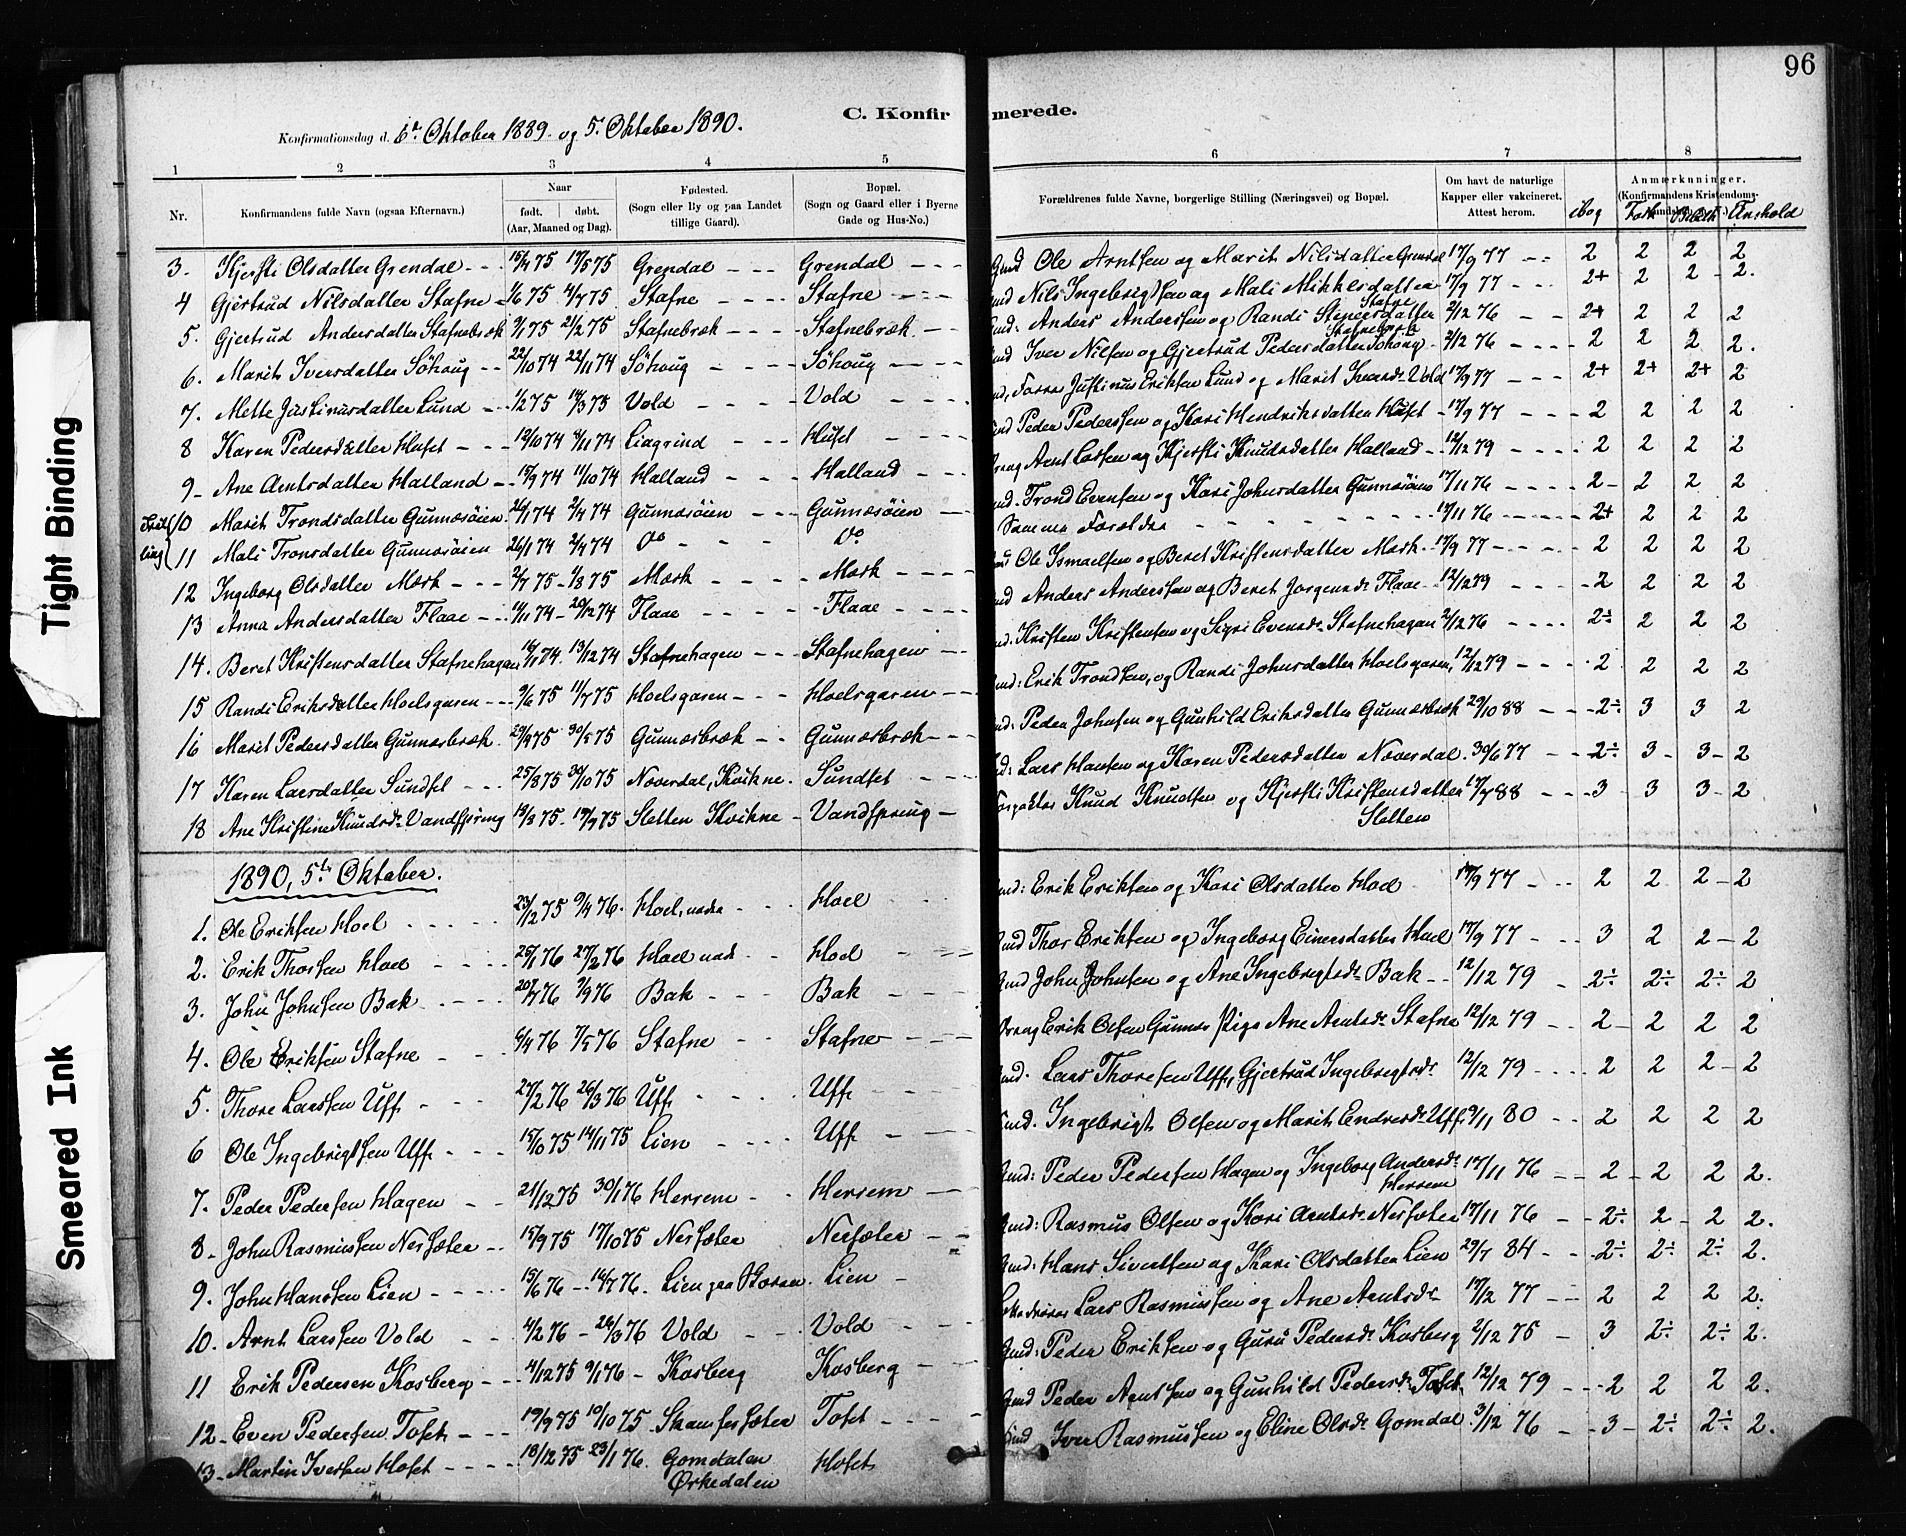 96
C. Konfirmerede.
Konfirmationsdag d. 6t Oktober 1889. og 5. Oktober 1890.
1 2 3 4 5 6 7 8
Nr. Konfirmandens fulde Navn (ogsaa Efternavn). Naar født. døbt. (Aar, Maaned og Dag). Fødested. (Sogn eller By og paa Landet tillige Gaard). Bopæl. (Sogn og Gaard eller i Byerne Gade og Hus-No.) Forældrenes fulde Navne, borgerlige Stilling (Næringsvei) og Bopæl. Om havt de naturlige Kapper eller vakcineret. Attest herom. Anmærkninger. (Konfirmandens Kristendoms-
3. Kjersti Olsdatter Grendal 15/4 75 17/5 75 Grendal Grendal Ole Arntsen og Marit Nilsdatter Grendal 17/9 77 2 2 2 2
4 Gjertrud Nilsdatter Stafne 1/6 75 4/7 75 Stafne Stafne Nils Ingebrigtsen og Mali Mikkelsdatter Stafne 17/9 77 2+ 2 2 2.
5. Gjertrud Andersdatter Stafnebræk 9/1 75 21/2 75 Stafnebræk Stafnebræk. Anders Anderssen og Randi Stafnebræk 2/12 76 2+ 2 2 2
6. Marit Iversdatter Söhoug 22/10 74 22/11 74 Söhoug Söhoug Iver Nilsen og Gjertrud Pedersdatter Söhoug 2/12 76 2 2 2 2.
7. Mette Justinusdatter Lund 1/2 75 14/3 75 Vold Vold Justinus Eriksen Lund og Marit Iversdr Vold 17/9 77 2+ 2+ 2+ 2
8 Karen Pedersdatter Huset 12/10 74 8/11 74 Liagrind Huset Peder Pederssen og Kari Hendriksdatter Huset 17/9 77 2 2 2 2
9 Ane Arntsdatter Halland 15/9 74 11/10 74 Halland Halland Arnt Larsen og Kjersti Knudsdatter Halland 12/12 79 2 2 2 2
10 Marit Trondsdatter Gunnesöien 26/1 74 2/4 74 Gunnesöien Gunnesöien Trond Evensen og Kari Johnsdatter Gunnesöien 17/11 76 2 2 2 2
11 Mali Tronsdatter Gunnesöien 26/1 74 2/4 74 Do Do Samme Forældre 17/11 76 2+ 2 2 2
12 Ingeborg Olsdatter Mærk 2/7 75 1/8 75 Mærk Mærk Ole Ismaelsen og Beret Kristensdatter Mærk 17/9 77 2 2 2 2
13 Anna Andersdatter Flaae 11/11 74 20/12 74 Flaae Flaae Anders Anderssen og Beret Jørgensdr Flaae 12/12 79 2 2 2 2
14. Beret Kristensdatter Stafnehagen 16/11 74. 13/12 74 Stafnehagen Stafnehagen Kristen Kristensen og Sigri Evensdr Stafnehagen 2/12 76 2÷ 2 2 2
15 Randi Eriksdatter Hoelsgaren 9/6 75 11/7 75 Hoelsgaren Hoelsgaren Erik Trondsen, og Randi Johnsdatter Hoelsgaren, 12/12 79 2 2 2 2
16 Marit Pedersdatter Gunnesbræk 29/4 75 30/5 75 Gunnesbræk Gunnesbræk Peder Johnsen og Gunhild Eriksdatter Gunnesbræk 29/10 88 2÷ 3 3 2
17 Karen Larsdatter Sundset 25/8 75 30/10 75 Næverdal, Kvikne. Sundset Lars Hansen og Karen Pedersdatter Næverdal. 30/6 77 2÷ 3 3 2
18 Ane Kristine Knudsdr Vandspring 14/3 75. 19/9 75 Sletten Kvikne Vandspring Knud Knudsen og Kjersti Kristensdatter Sletten 17/7 88 3 3 3 2
1890, 5te Oktober.
1. Ole Eriksen Hoel 23/12 75 9/4 76. Hoel, nedre Hoel Erik Eriksen og Kari Olsdatter Hoel 17/9 77 2 2 2 2
2. Erik Thorsen Hoel 25/1 76 27/2 76 Hoel ned. Hoel Thor Eriksen og Ingeborg Einersdatter Hoel 17/9 77 3 2 2 2
3. John Johnsen Bak 20/7 76 3/9 76 Bak Bak John Johnsen og Ane Ingebrigtsdr Bak 12/12 79 2÷ 2÷ 2÷ 2
4. Ole Eriksen Stafne 6/4 76 7/5 76 Stafne Stafne Erik Olsen Gunnes Pige Ane Arntsdr Stafne 12/12 79 2 2 2 2
5. Thore Larssen Uff. 27/2 76 26/3 76 Uff. Uff. Lars Thoresen Uff, Gjertrud Ingebrigtsdr 12/12 79 2 2 2 2
6 Ole Ingebrigtsen Uff. 15/10 75 14/11 75 Lien Uff. Ingebrigt Olsen og Marit Endresdr Uff. 9/11 80 2 2 2 2
7. Peder Pedersen Hagen 21/12 75 30/1 76 Herrem Herrem Peder Pedersen Hagen og Ingeborg Andersdr Herrem 17/11 76 2 2 2 2.
8 John Rasmussen Nersæter 15/9 75 17/10 75 Nersæter Nersæter Rasmus Olsen og Kari Arntsdr Nersæter 17/11 76 2÷ 2 2 2.
9. John Hanssen Lien 15/6 76 16/7 76. Lien Lien Hans Sivertsen og Kari Olsdatter Lien 29/7 84 2÷ 2÷ 2÷ 2.
10. Arnt Larssen Vold 4/2 76 26/3 76 Vold Vold Lars Rasmussen og Ane Arntsdr 17/12 77 2 2 2 2.
11 Erik Pedersen Kosberg 4/12 75 9/1 76 Kosberg Kosberg Peder Eriksen og Guru Pedersdr Kosberg 2/12 75 3 2÷ 2÷ 2.
12 Even Pedersen Tofet 19/9 75 10/10 75 Skamfersæter Tofet Peder Arntsen og Gunhild Pedersdr Tofet. 12/12 79 2 2 2 2.
13 Martin Iversen Hofet 18/12 75 23/1 76. Gomdalen Ørkedalen Hofet Iver Rasmussen og Eline Olsdr Gomdal. 3/12 76 3 2÷ 2÷ 2.
Tight Binding
Smeared Ink